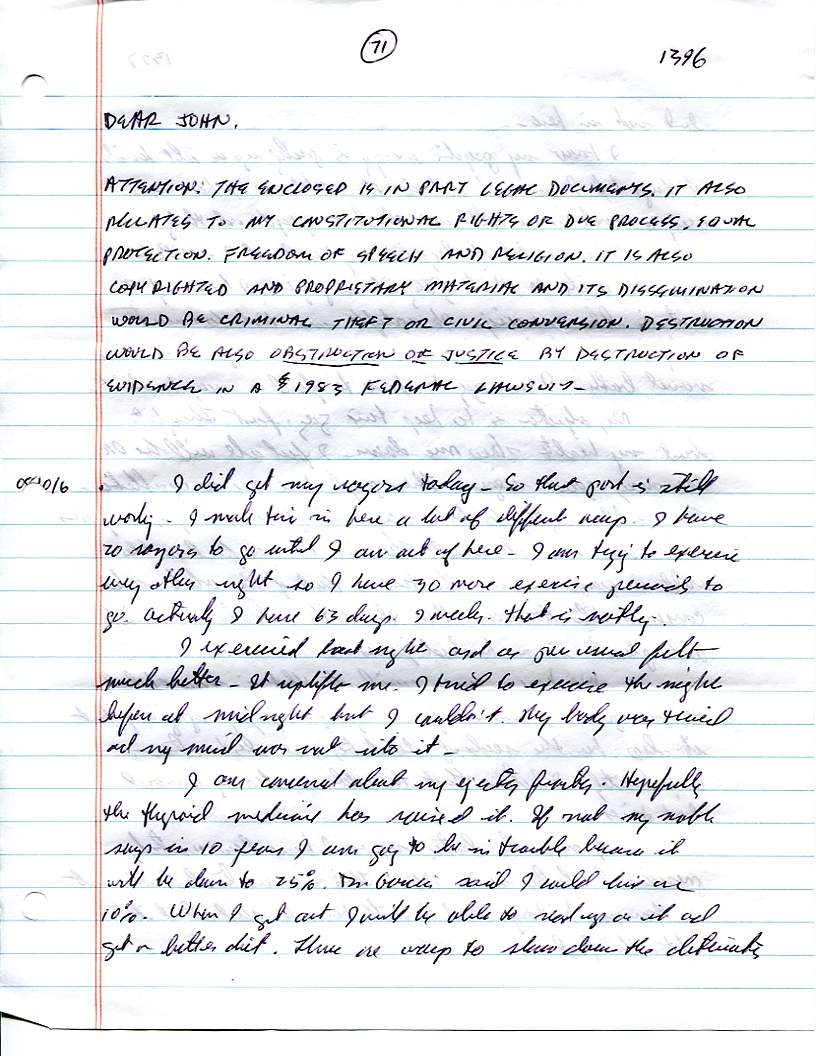 71
1396
DEAR JOHN,
ATTENTION: THE ENCLOSED IS IN PART LEGAL DOCUMENTS. IT ALSO
RELATES TO MY CONSTITUTIONAL RIGHTS OF DUE PROCESS, EQUAL
PROTECTION. FREEDOM OF SPEECH AND RELIGION. IT IS ALSO
COPYRIGHTED AND PROPRIETARY MATERIAL AND ITS DISSEMINATION
WOULD BE CRIMINAL THEFT OR CIVIL CONVERSION. DESTRUCTION
WOULD BE ALSO OBSTRUCTION OF JUSTICE BY DESTRUCTION OF
EVIDENCE IN A § 1983 FEDERAL LAWSUIT-
I did get my razors today - So that part is still
working. I mark time in here a lot of different ways. I have
20 razors to go until I am out of here - I am trying to exercise
every other night so I have 30 more exercise periods to
go. Actually I have 63 days. 9 weeks. That is nothing.
I exercised last night and as per usual felt
much better - It uplifts me. I tried to exercise the night
before at midnight but I couldn't. My body was tired
and my mind was not into it -
I am concerned about my ejection fraction. Hopefully
the thyroid medicine has raised it. If not my
says in 10 years I am going to be in trouble because it
will be down to 25%. Dr. Garcia said I could live on
10%. When I get out I will be able to read up on it and
get a better diet. There are ways to slow down the deterioration